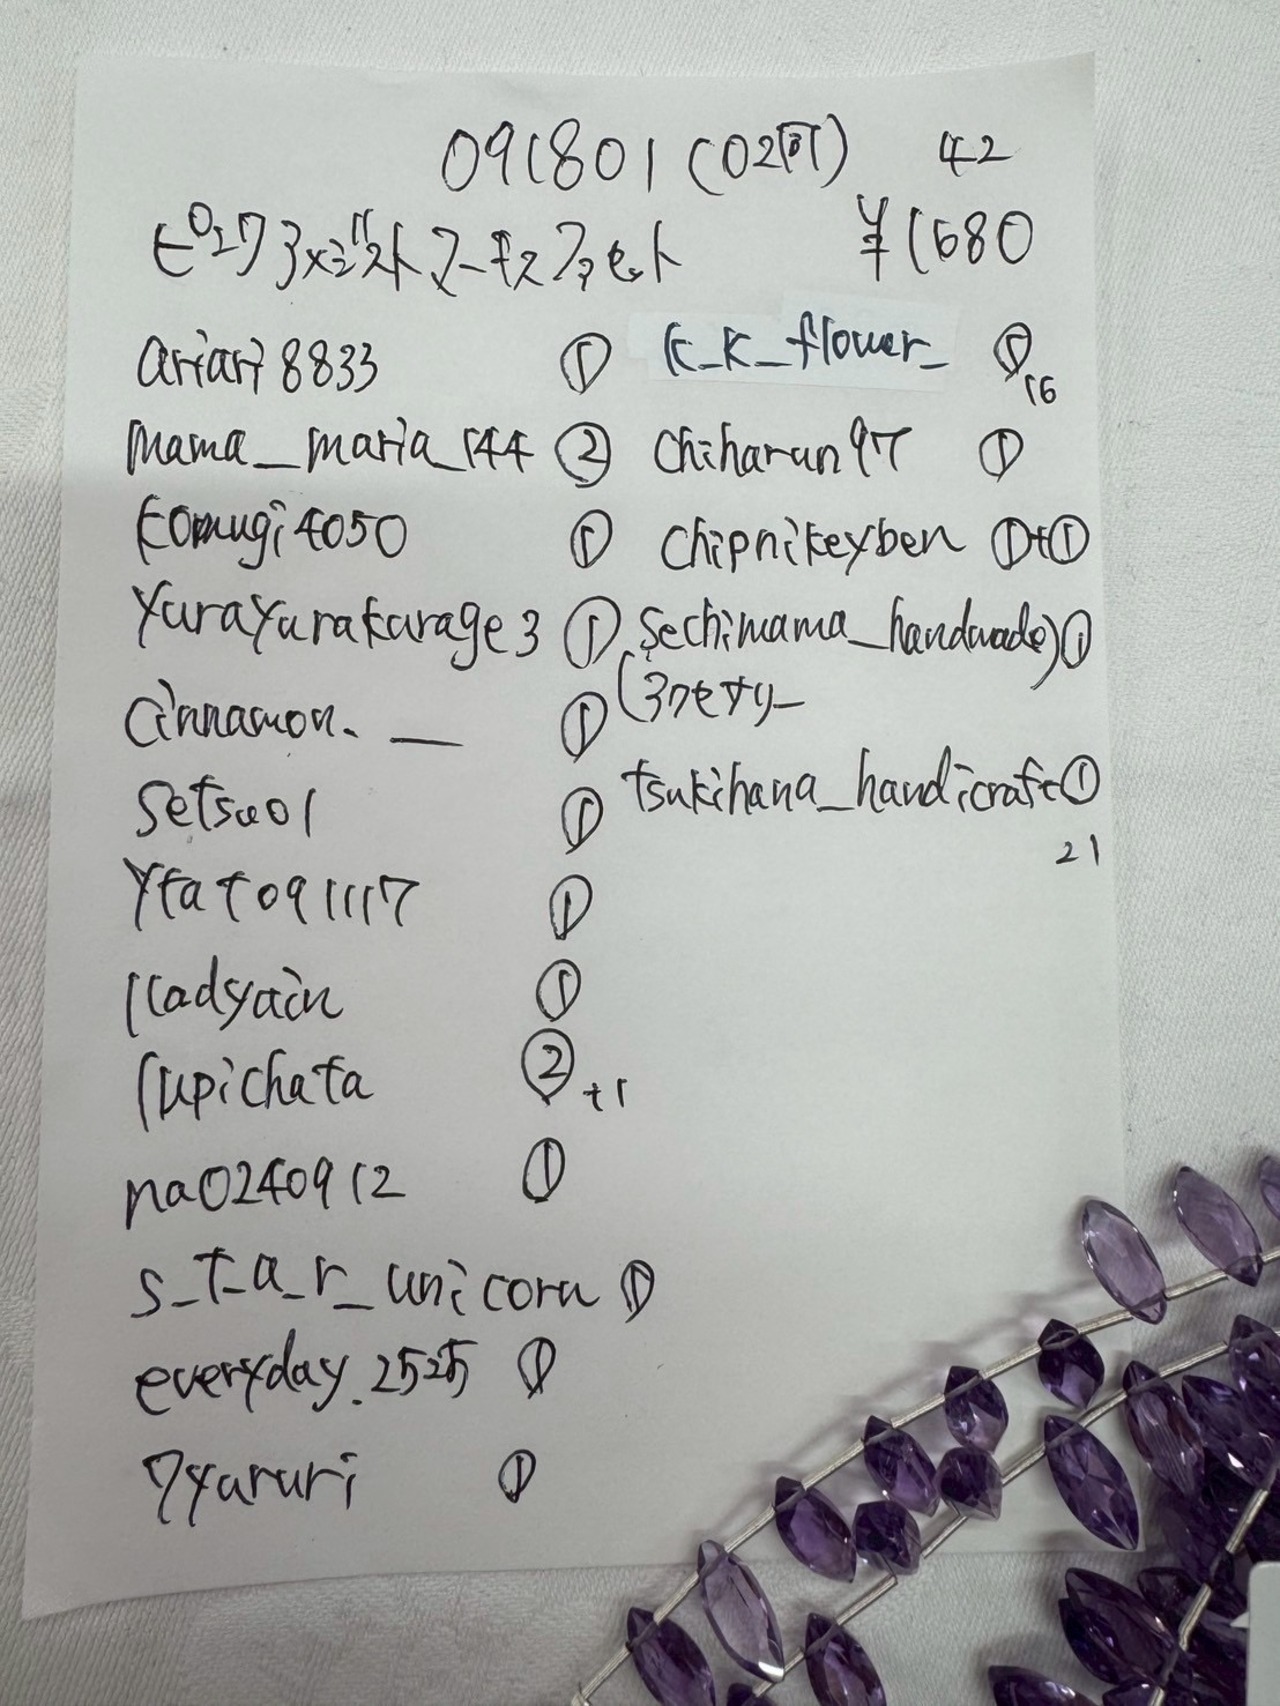 091801 (02可) 42
ピンクアメジストマーキスファセット ¥1680
ariari8833 ①
mama_maria_144 ②
komugi4050 ①
yurayurakurage3 ①
cinnamon.__ ①
setsu01 ①
ytat091117 ①
kadyain ①
lupichata ② +1
na0240912 ①
s_t_a_r_unicorn ①
everyday.2525 ①
7yururi ①
k_k_flower_ ① 16
chiharun97 ①
chipnikeyben ①+①
sechimama_handmade) ①
tsukihana_handicraft ①
21